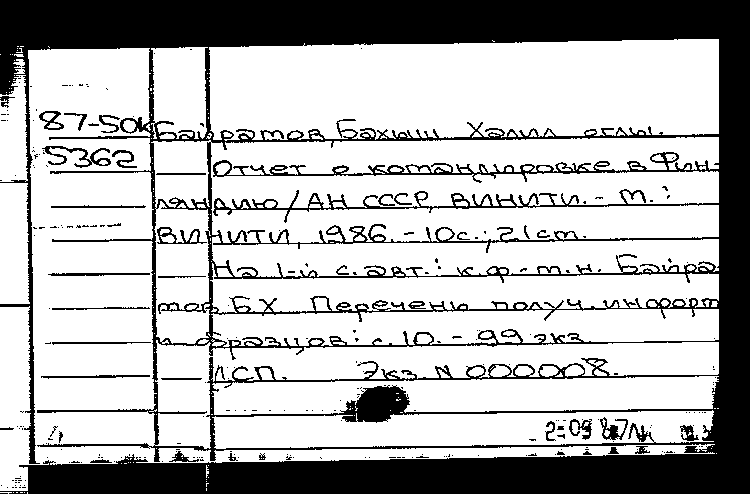 87-50к Байрамов, Бахыш Халил оглы.
5362 Отчет о командировке в Фин-
ляндию / АН СССР, ВИНИТИ. - М.:
ВИНИТИ, 1986. - 10 с.; 21 см.
На 1-й с. авт.: к.ф.-м.н. Байра-
мов Б.Х. Перечень получ. информ
и образцов: с. 10. - 99 экз.
ДСП. Экз. N 000008.